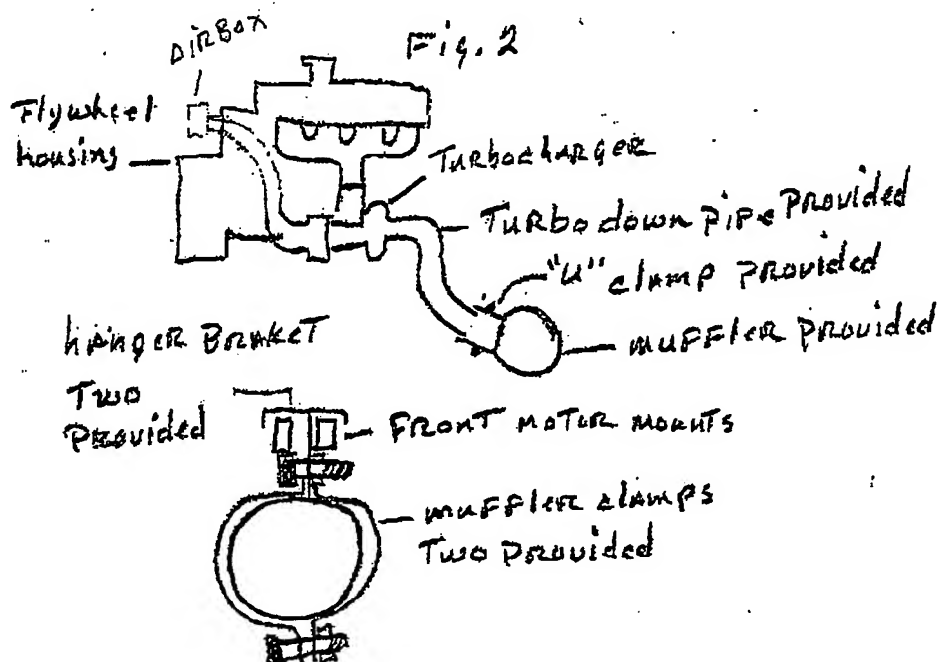 Fig. 2
AIRBOX
Flywheel
housing
TURBOCHARGER
TURBO down pipe PROVIDED
"U" clamp PROVIDED
muffler PROVIDED
hANGER BRAKET
TWO
PROVIDED
FRONT MOTOR MOUNTS
muffler clamps
TWO PROVIDED